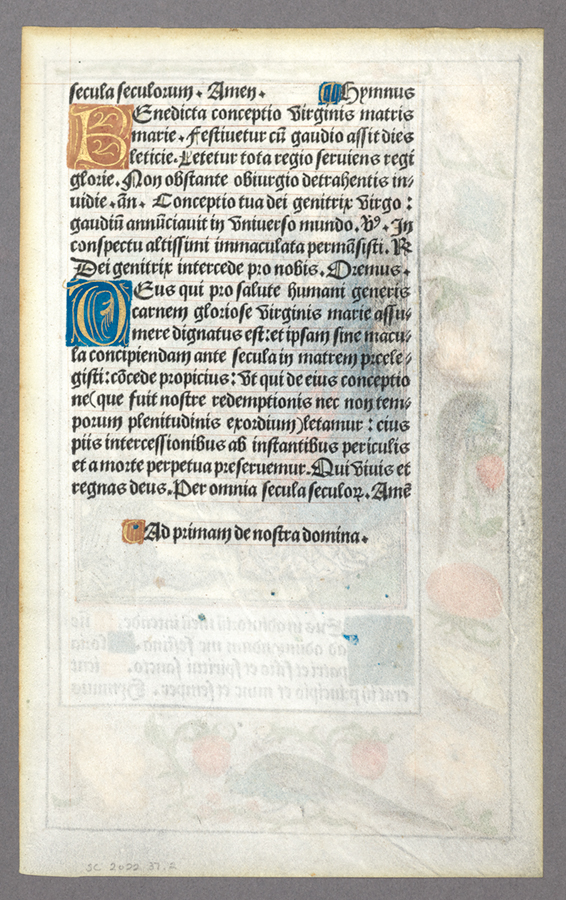 secula seculorum. Amen. Hymnus
BEnedicta conceptio virginis matris
marie. Festiuetur cū gaudio assit dies
leticie. Letetur tota regio seruiens regi
glorie. Non obstante obiurgio detrahentis in/
uidie. añ. Conceptio tua dei genitrix virgo :
gaudiū annūciauit in vniuerso mundo. ℣. In
conspectu altissimi immaculata permāsisti. ℟
Dei genitrix intercede pro nobis. Oremus.
DEus qui pro salute humani generis
carnem gloriose virginis marie assu/
mere dignatus est: et ipsam sine macu/
la concipiendam ante secula in matrem preele/
gisti: cōcede propicius: vt qui de eius conceptio
ne (que fuit nostre redemptionis nec non tem/
porum plenitudinis exordium) letamur : eius
piis intercessionibus ab instantibus periculis
et a morte perpetua preseruemur. Qui viuis et
regnas deus. Per omnia secula seculoꝝ. Amē
Ad primam de nostra domina.
SC 2022.37.2